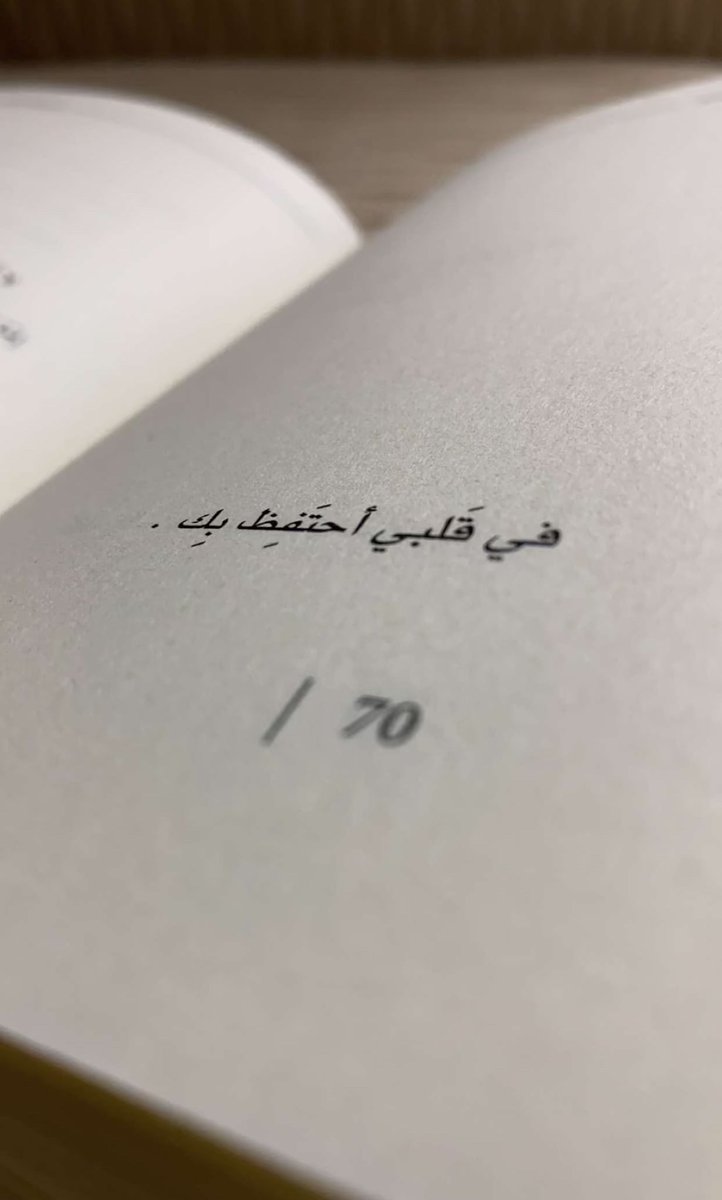 في قَلبي أحتَفِظ بِكِ .
70 /